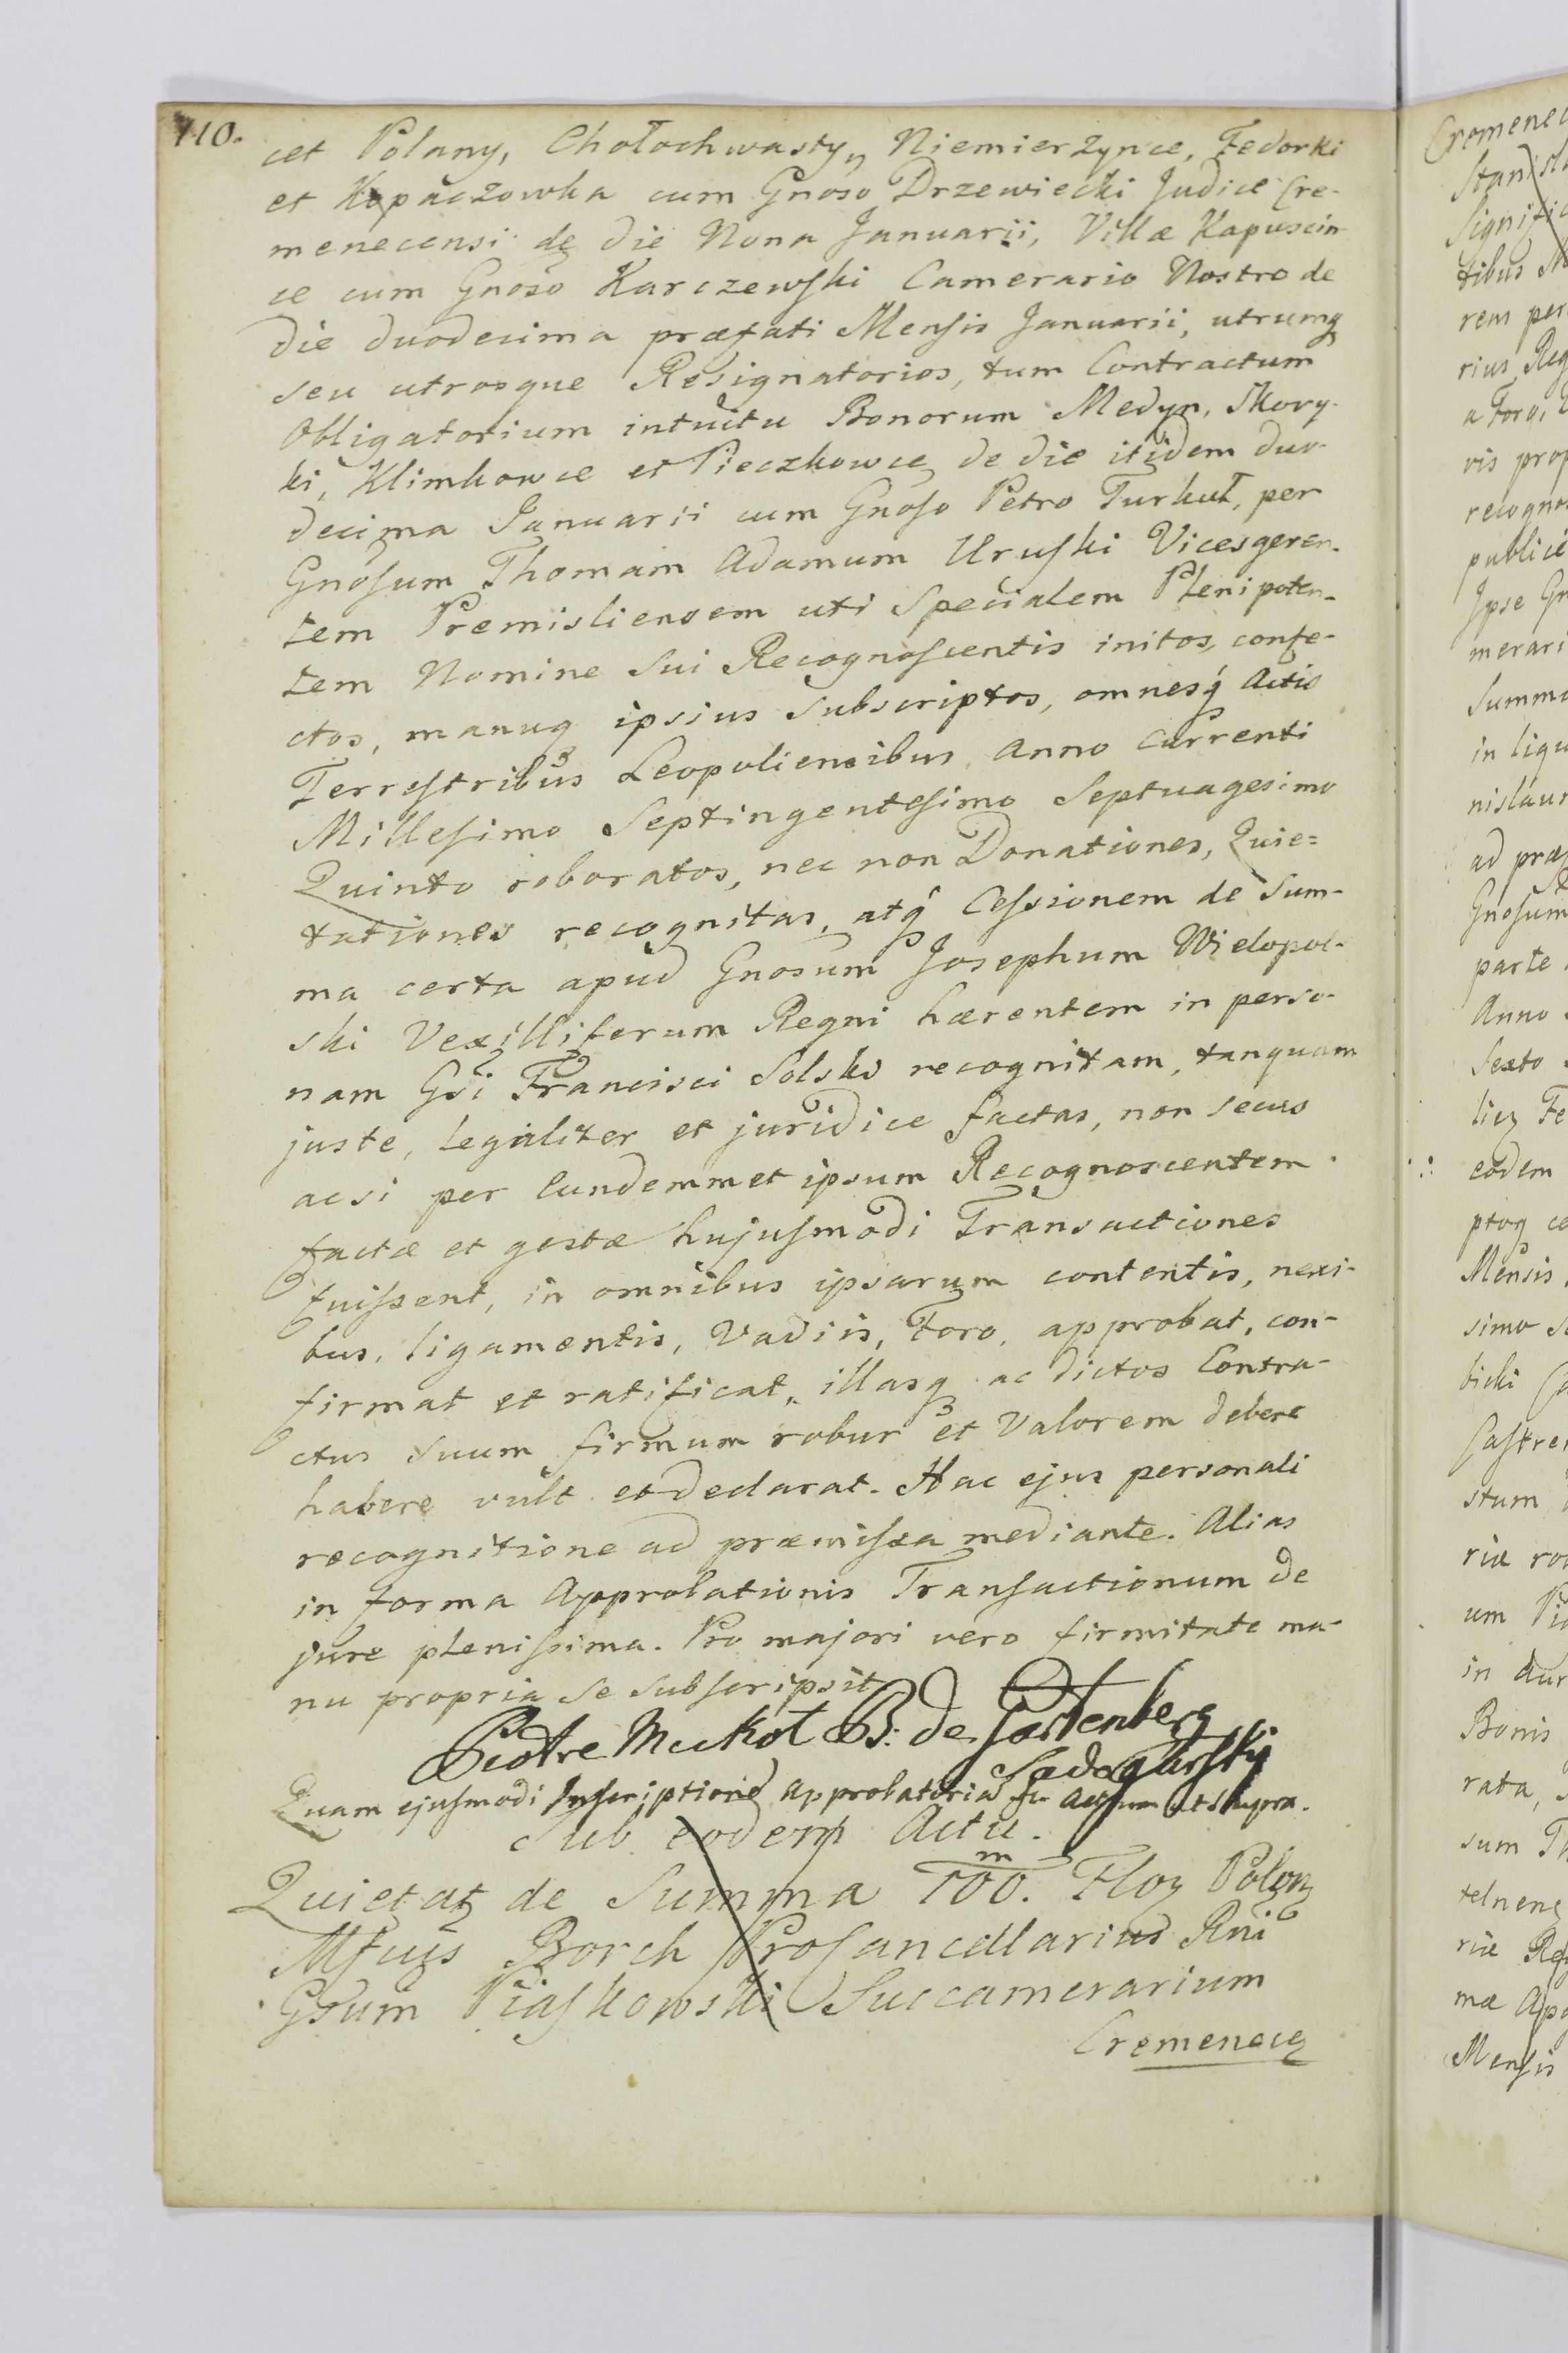 110.
cet Polany, Chołochwasty, Niemierzynce, Fedorki
et Kopaczowka cum Gnoso Drzewiecki Judice Cre-
menecensi de die Nona Januarii, Villæ Kapuscin-
ce cum Gnoso Karczewski Camerario Nostro de
die duodecima præfati Mensis Januarii, utrumq
seu utrosque Resignatorios, tum Contractum
Obligatorium intuitu Bonorum Medyn, Skory-
ki, Klimkowce et Pieczkowce de die itidem duo-
decima Januarii cum Gnoso Petro Turkuł, per
Gnosum Thomam Adamum Uruski Vicesgeren-
tem Premisliensem uti Specialem Plenipoten-
tem Nomine Sui Recognoscentis initos, confe-
ctos, manuq ipsius subscriptos, omnesq Actis
Terrestribus Leopoliensibus Anno Currenti
Millesimo Septingentesimo Septuagesimo
Quinto roboratos, nec non Donationes, Quie=
tationes recognitas, atq Cessionem de Sum-
ma certa apud Gnosum Josephum Wielopol-
ski Vexilliferum Regni hærentem in perso-
nam Gsi Francisci Solski recognitam, tanquam
juste, legaliter et juridice factas, non secus
acsi per Eundemmet ipsum Recognoscentem
factæ et gestæ hujusmodi Transactiones
fuissent, in omnibus ipsarum contentis, nexi-
bus, ligamentis, Vadiis, Foro, approbat, con-
firmat et ratificat, illasq ac dictos Contra-
ctus suum firmum robur et Valorem debere
habere vult et declarat. Hac ejus personali
recognitione ad præmissa mediante. Alias
in forma Approbationis Transactionum de
jure plenissima. Pro majori vero firmitate ma-
nu propria se subscripsit
Piotre B: de
Quam ejusmodi Inscriptione Approbatoria ut supra.
Sub eodem Actu.
Quietatq de Summa 100.m Floq Polonq
Borch Procancellarius Rni
Gsum Piaskowski Succamerarium
Cremenecq
Cremenec
Signific
tibus
rem per
rius Reg
vis prop
publice
Ipse Gn
merari
Summa
in liqu
Gnosum
parte
Anno
Sexto
eodem
Mensis
simo
stum
in
Bonis
rata,
sum Th
Mensis